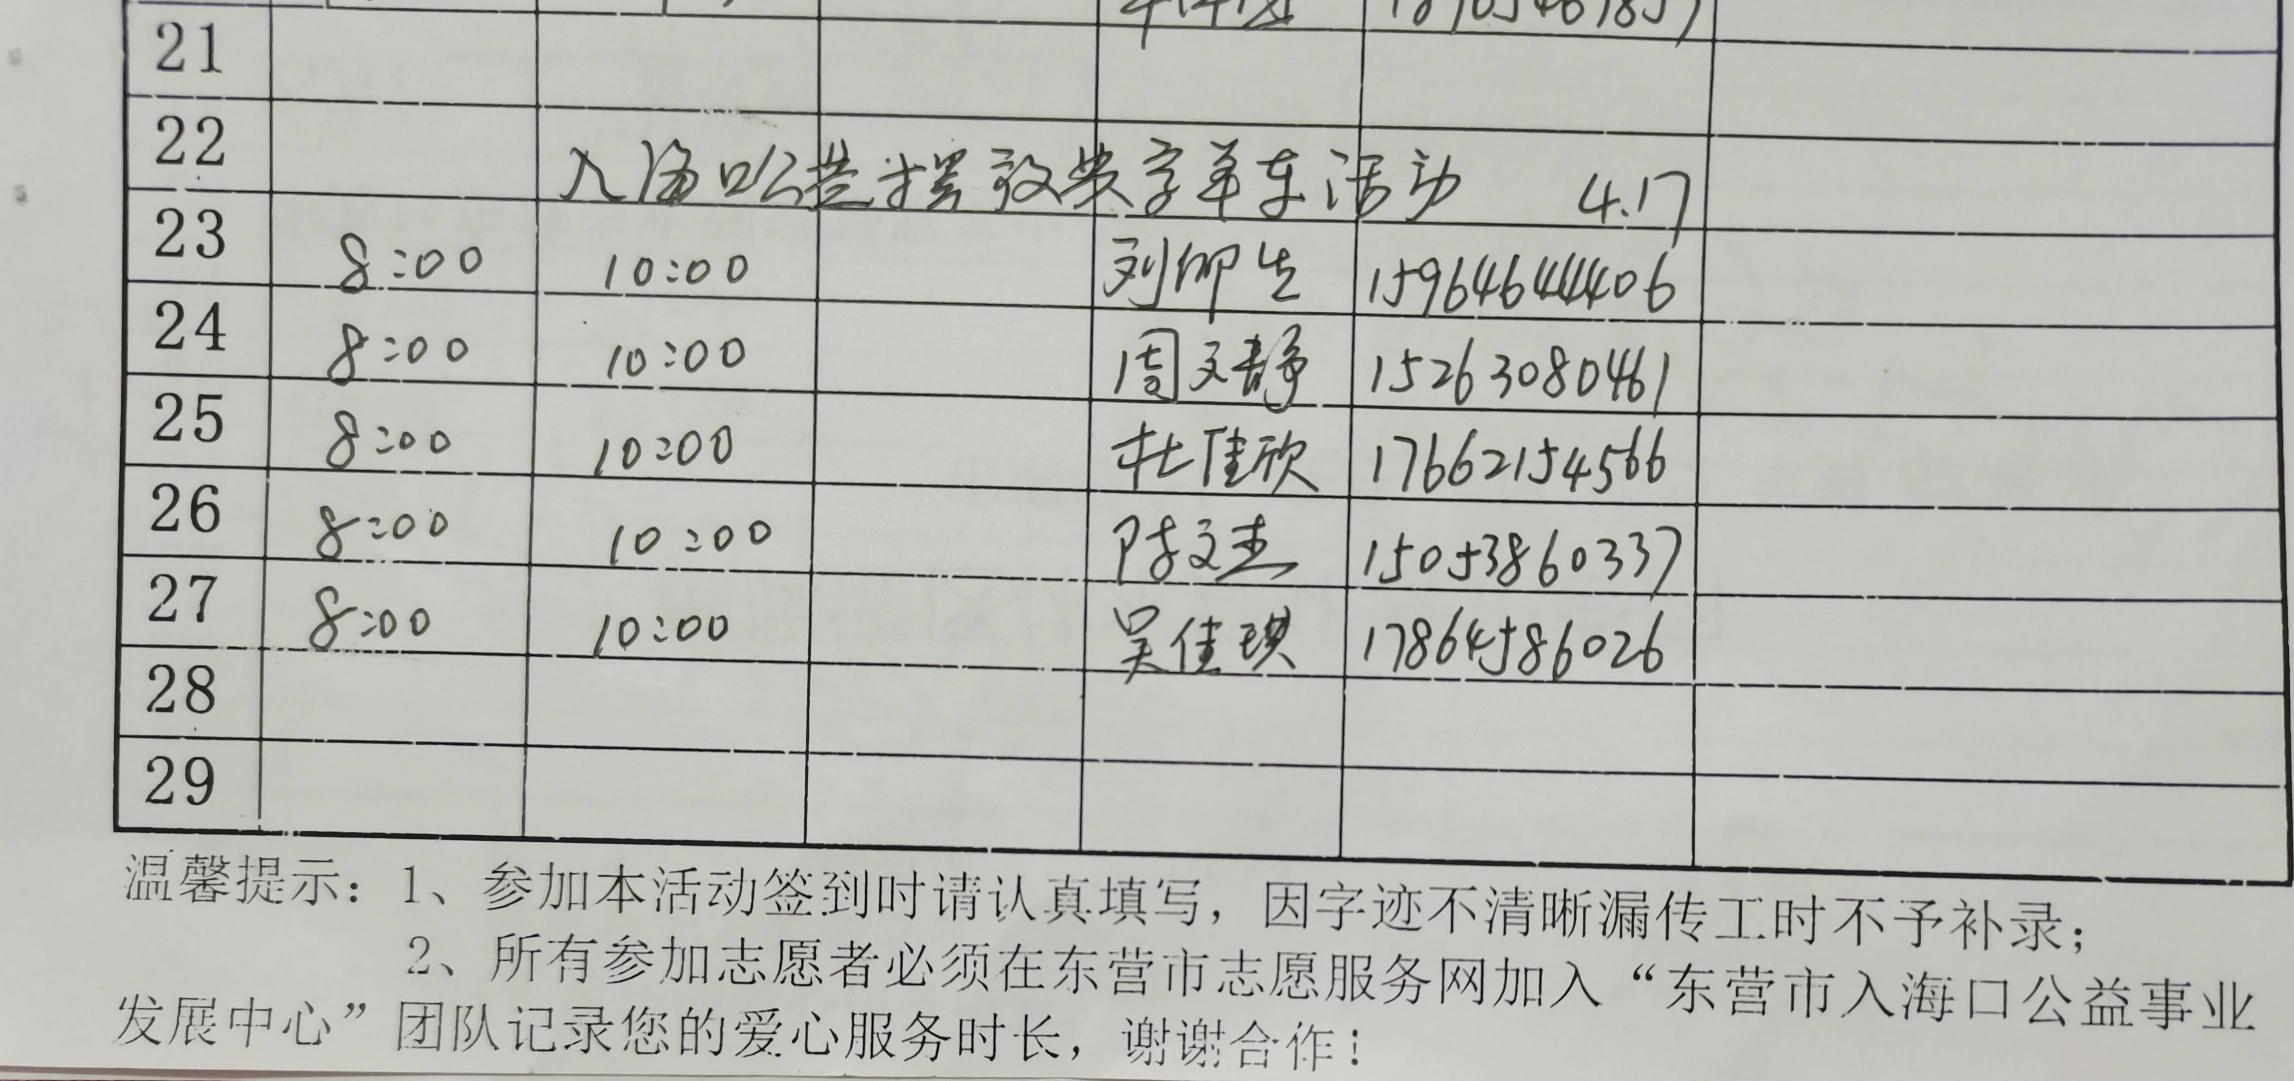 21
22
入海口公益摆放共享单车活动 4.17
23 8:00 10:00 刘师生 15964644406
24 8:00 10:00 周文静 15263080461
25 8:00 10:00 杜佳欣 17662154566
26 8:00 10:00 陈文杰 15053860337
27 8:00 10:00 吴佳琪 17864586026
28
29
温馨提示：1、参加本活动签到时请认真填写，因字迹不清晰漏传工时不予补录；
2、所有参加志愿者必须在东营市志愿服务网加入“东营市入海口公益事业
发展中心”团队记录您的爱心服务时长，谢谢合作！